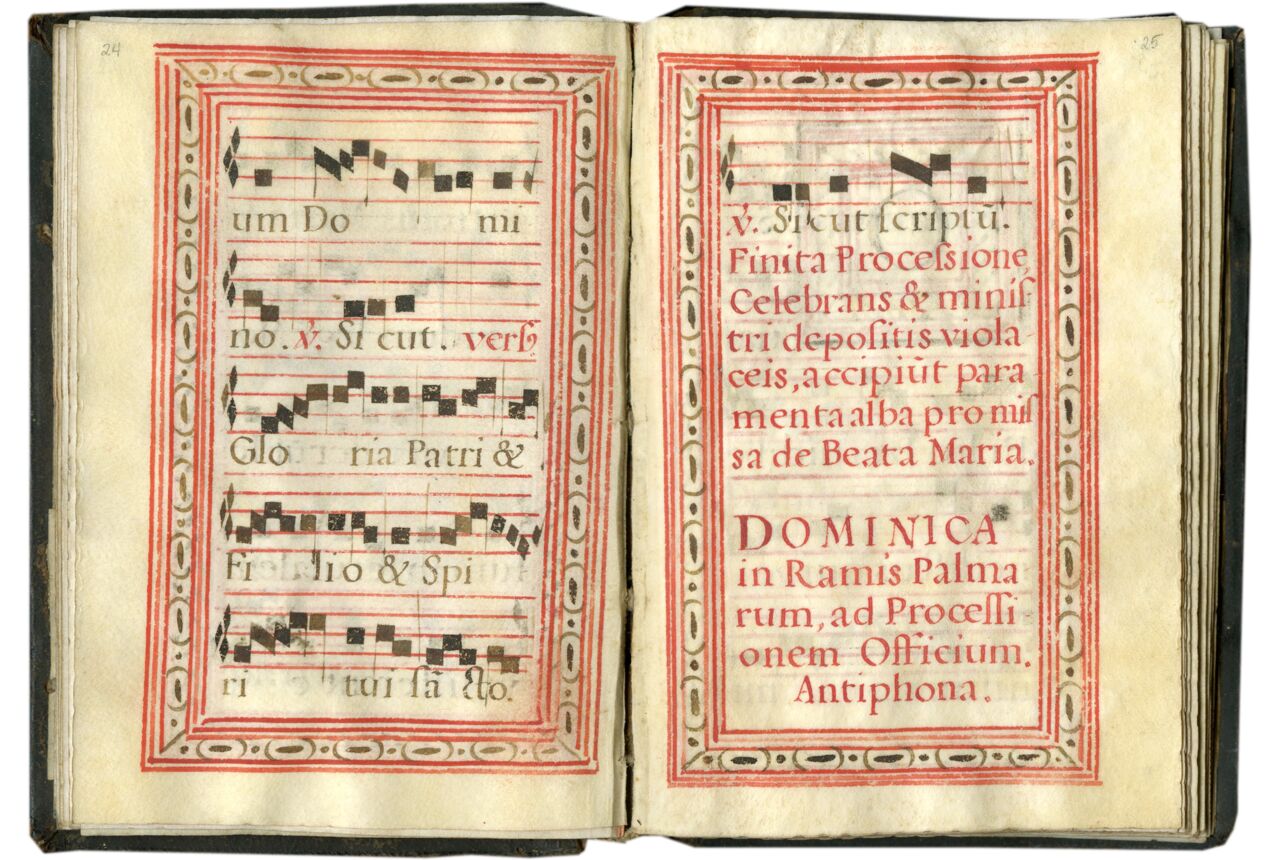 24
um Do mi
no. ℣. Sicut. versꝰ
Glo ria Patri &
Fi lio & Spi
ri tui ſā cto.
25
℣. Sicut ſcriptū.
Finita Proceſsione,
Celebrans & miniſ-
tri depoſitis viola-
ceis, accipiūt para
menta alba pro miſ
sa de Beata Maria.
DOMINICA
in Ramis Palma
rum, ad Proceſſi-
onem Officium.
Antiphona.